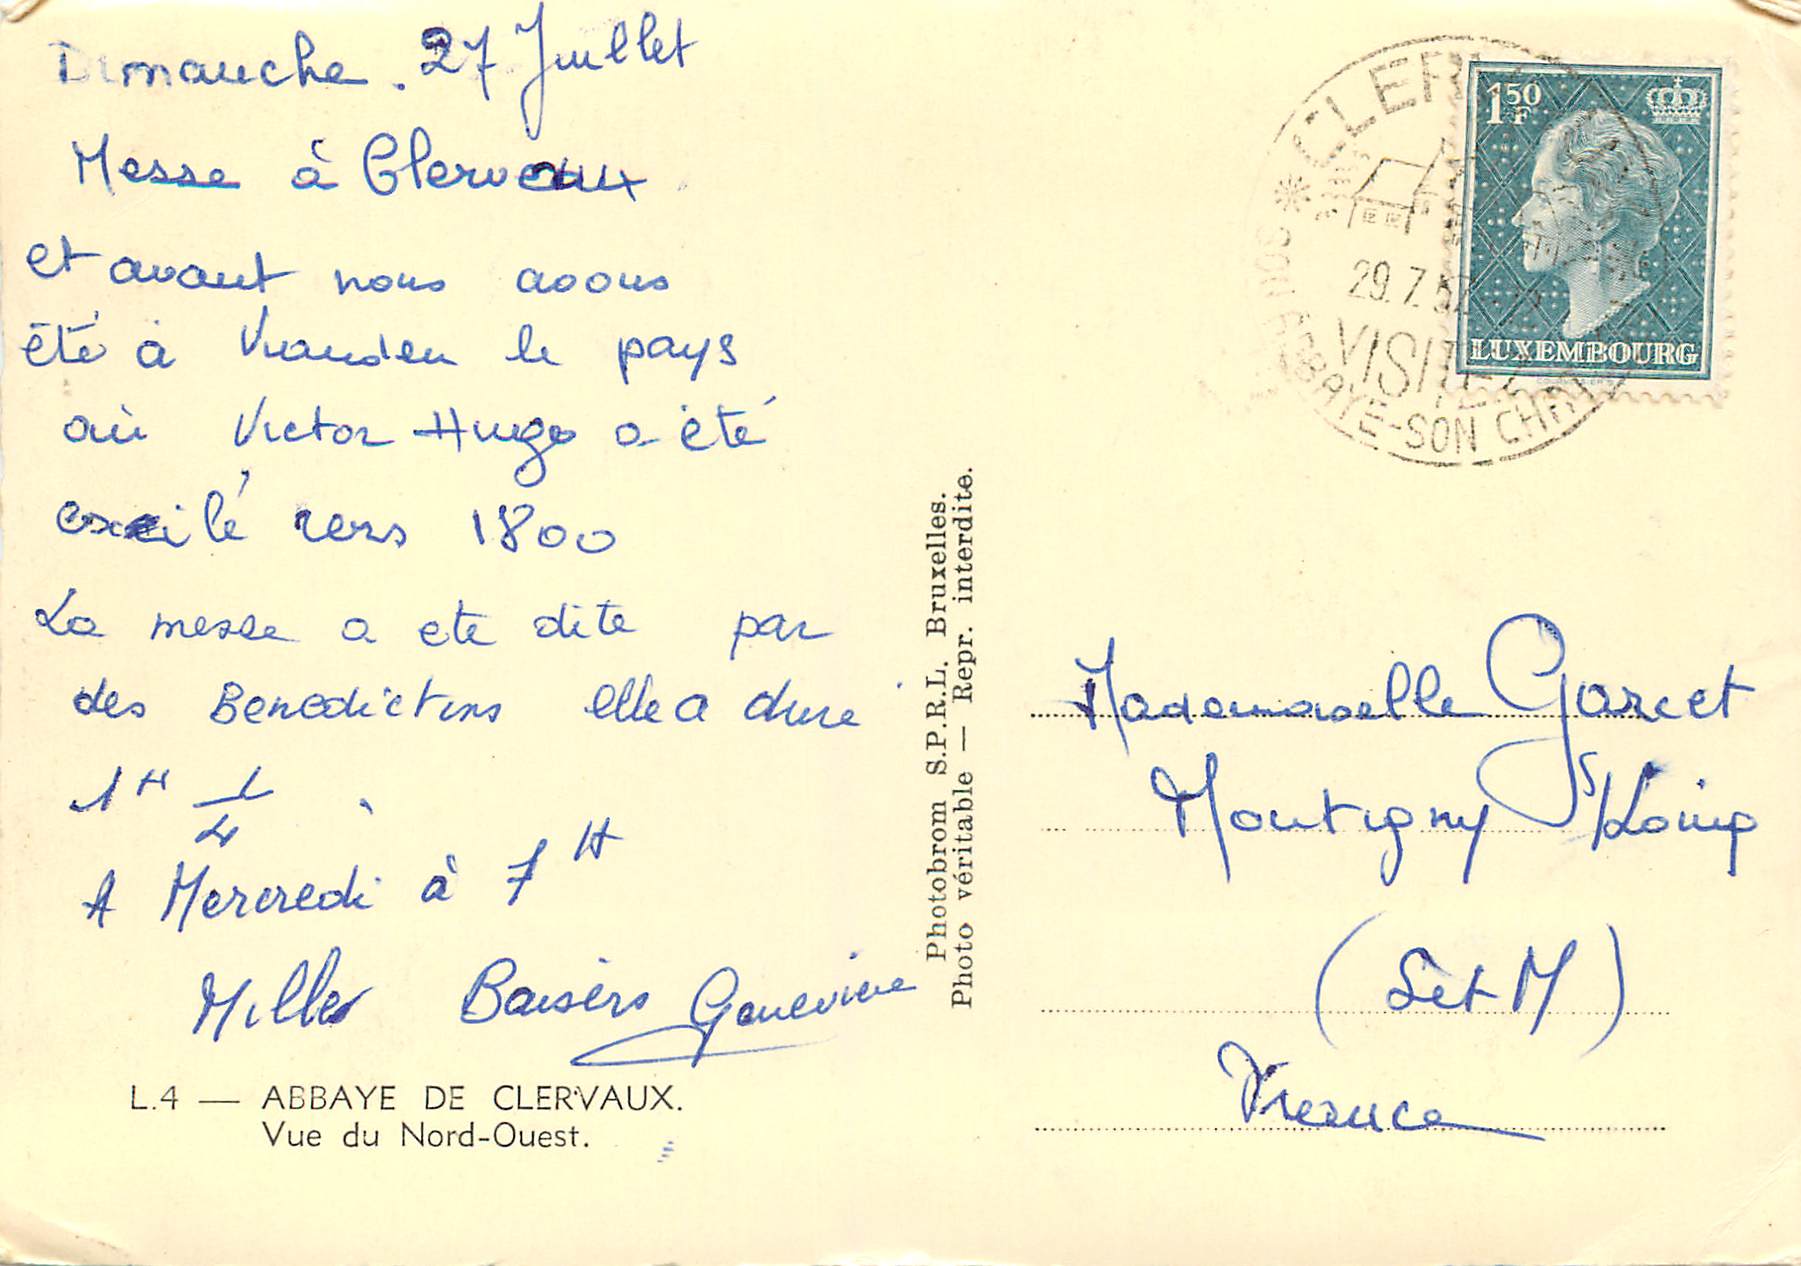 Dimanche. 27 Juillet
Messe à Clerveaux
et avant nous avons
été à Vianden le pays
où Victor Hugo a été
exilé vers 1800
La messe a eté dite par
des Benedictins elle a dure
1H 1/4
A Mercredi à 7H
Milles Baisers Genevieve
L.4 — ABBAYE DE CLERVAUX.
Vue du Nord-Ouest.
Photobrom S.P.R.L. Bruxelles.
Photo véritable — Repr. interdite.
CLERV
29.7.5
VISITEZ
SON ABBAYE-SON CHAT
1F50
LUXEMBOURG
Mademoiselle Garcet
Montigny s/Loing
(S et M)
France